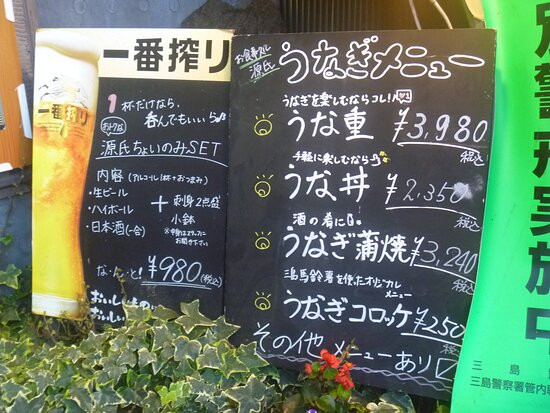 一番搾り
一番搾り
1杯だけなら、
呑んでもいいぅ
おトクな
源氏ちょいのみSET
内容(アルコール1杯+おつまみ)
・生ビール
・ハイボール
・日本酒(一合)
+
刺身2点盛
小鉢
※中身はスタッフに
お聞き下さい
な・ん・と! ¥980(税込)
おいしい
おいしい
お食事処
源氏
うなぎメニュー
うなぎを楽しむならコレ!
うな重 ¥3,980
税込
手軽に楽しむなら
うな丼 ¥2,350
税込
酒の肴に
うなぎ蒲焼 ¥3,240
税込
三島馬鈴薯を使たオリジナル
メニュー
うなぎコロッケ ¥250
税込
その他 メニューあり
別警戒実施中
三島
三島警察署管内